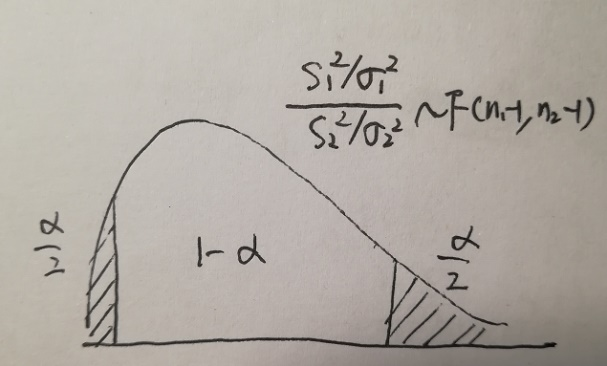 S₁²/σ₁²
S₂²/σ₂² ~F(n₁-1, n₂-1)
α/2
1-α
α/2